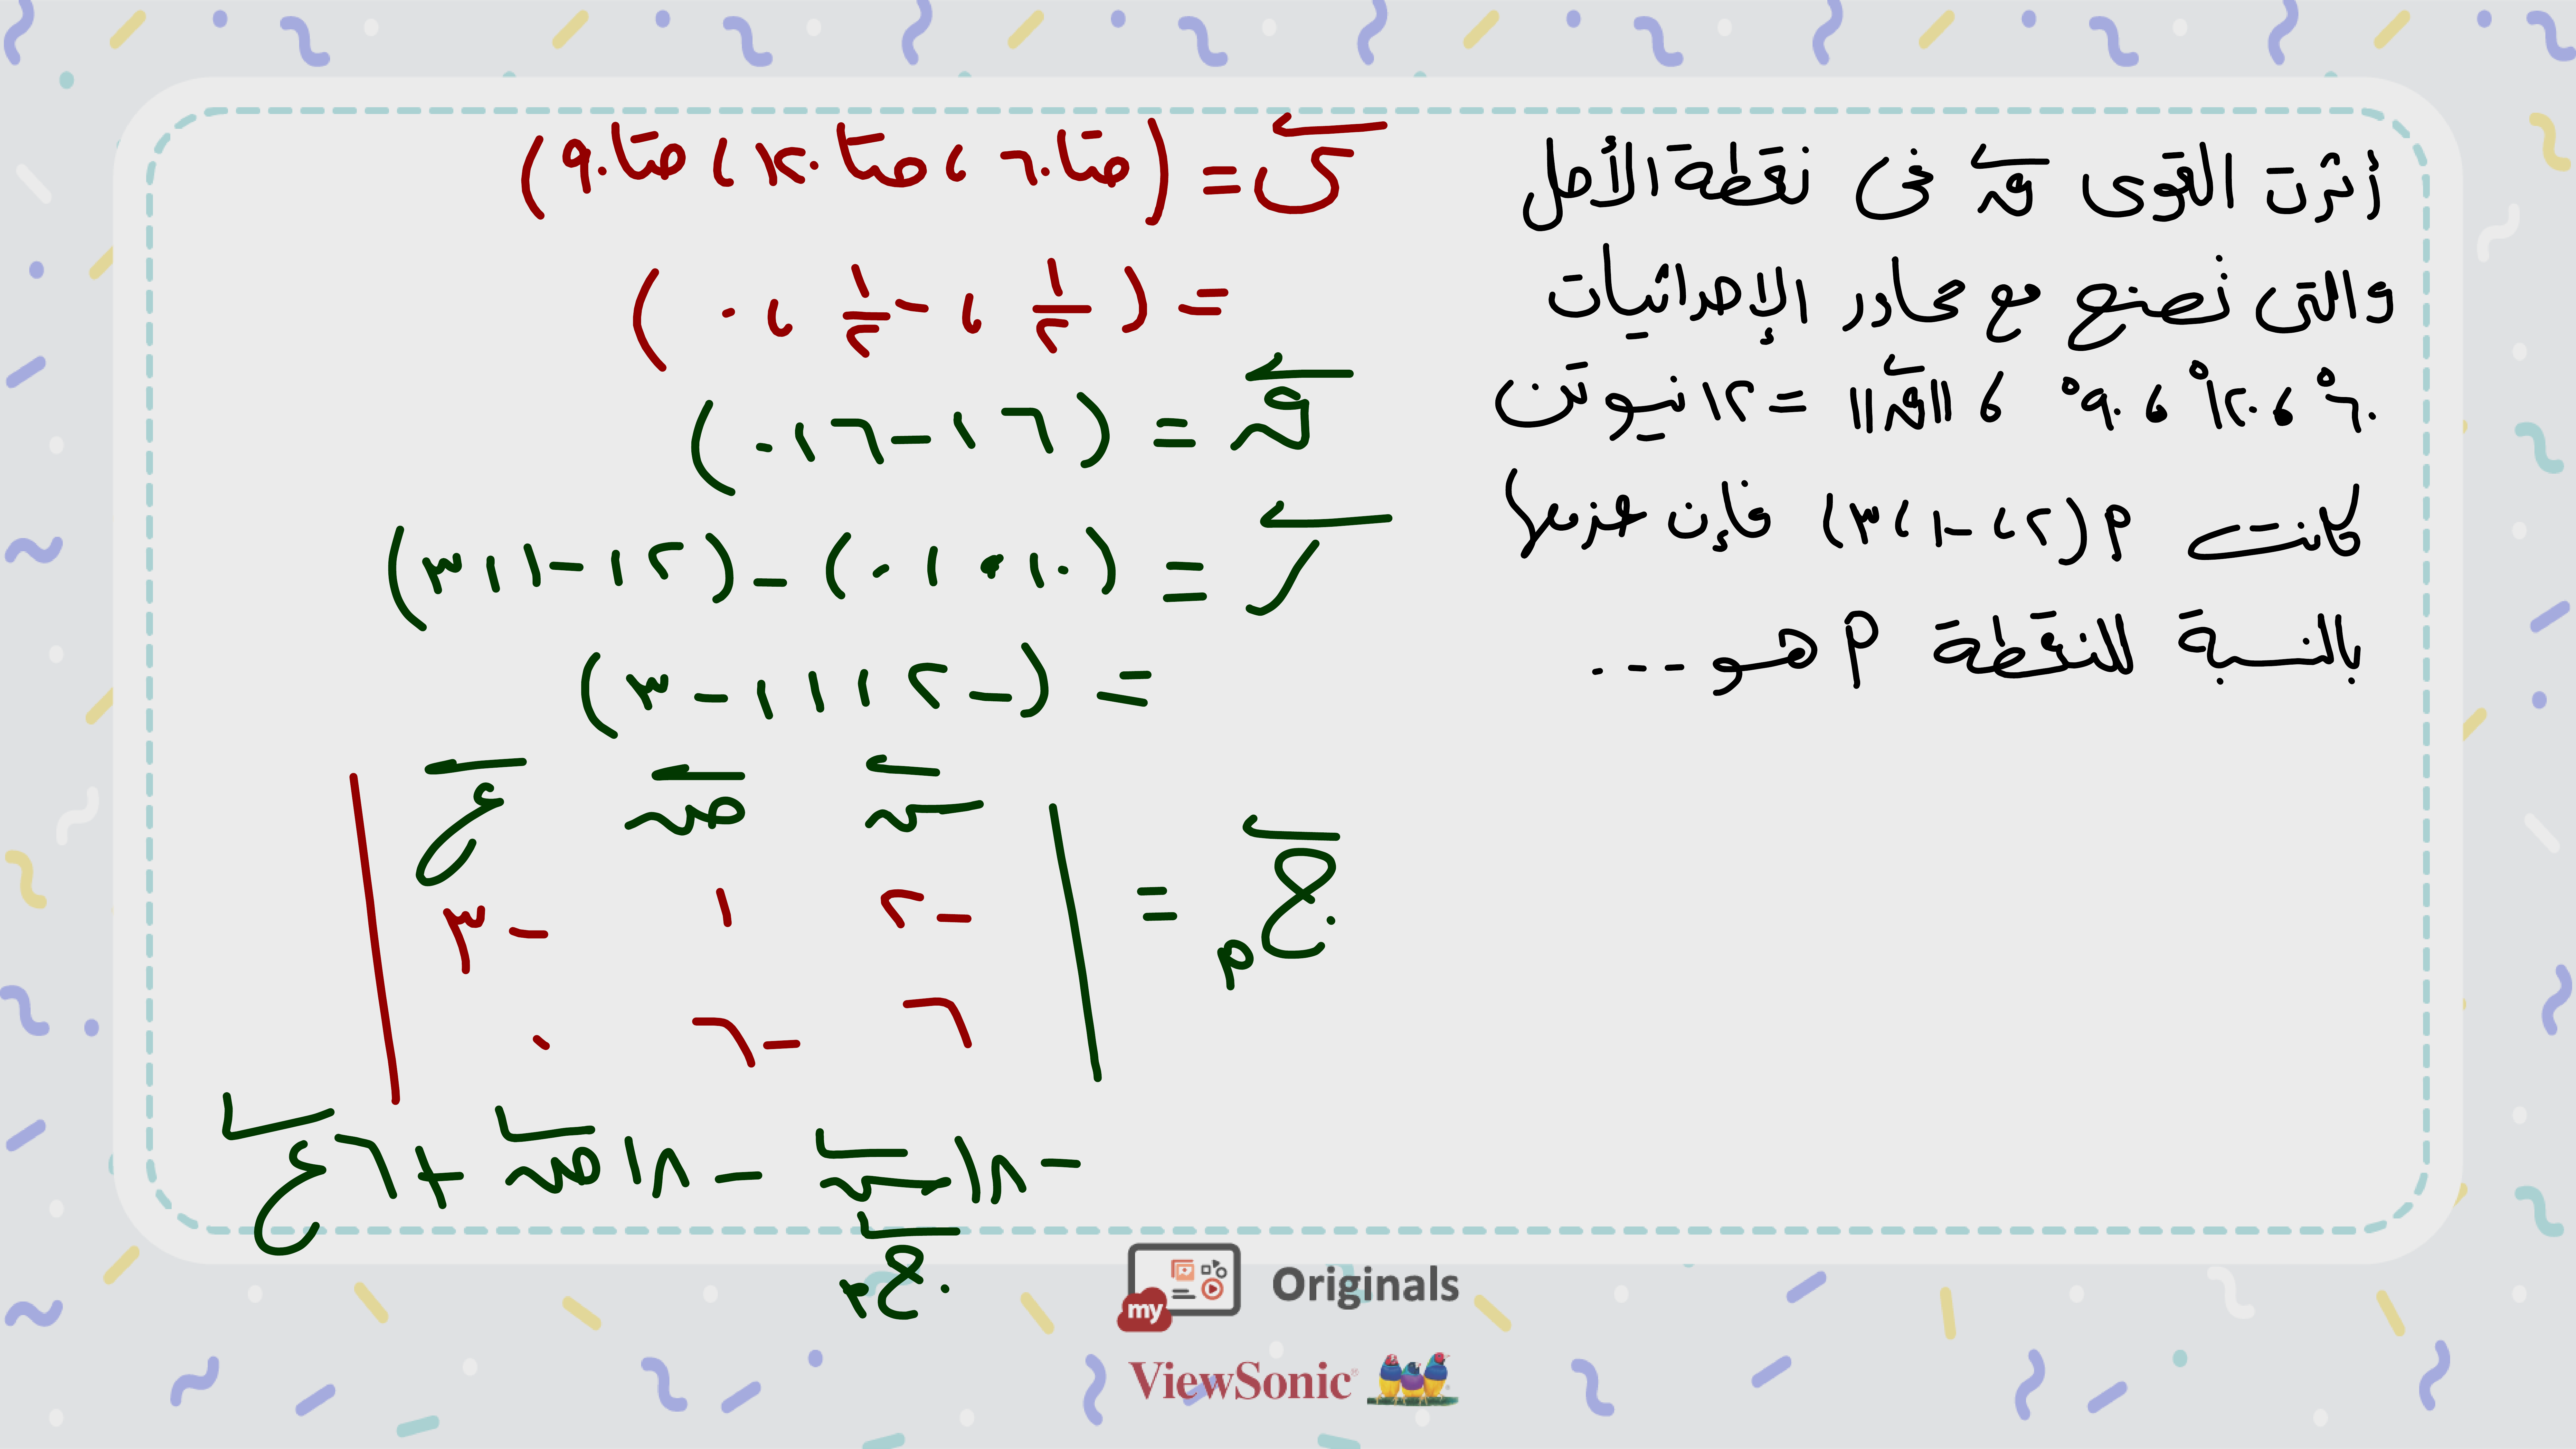 أثرت القوى ق في نقطة الأصل
والتى تصنع مع محاور الإحداثيات
٦٠° ، ١٢٠° ، ٩٠° ، ||ق|| = ١٢ نيوتن
كانت م (٢ ، -١ ، ٣) فإن عزمها
بالنسبة للنقطة م هو ...
ى = (حتا ٦٠ ، حتا ١٢٠ ، حتا ٩٠)
= (١/٢ ، -١/٢ ، ٠)
ق = (٦ ، -٦ ، ٠)
ر = (٠ ، ٠ ، ٠) - (٢ ، -١ ، ٣)
= (-٢ ، ١ ، -٣)
ج م =
س ص ع
-٢ ١ -٣
٦ -٦ ٠
-١٨ س - ١٨ ص + ٦ ع
ج م
my Originals
ViewSonic